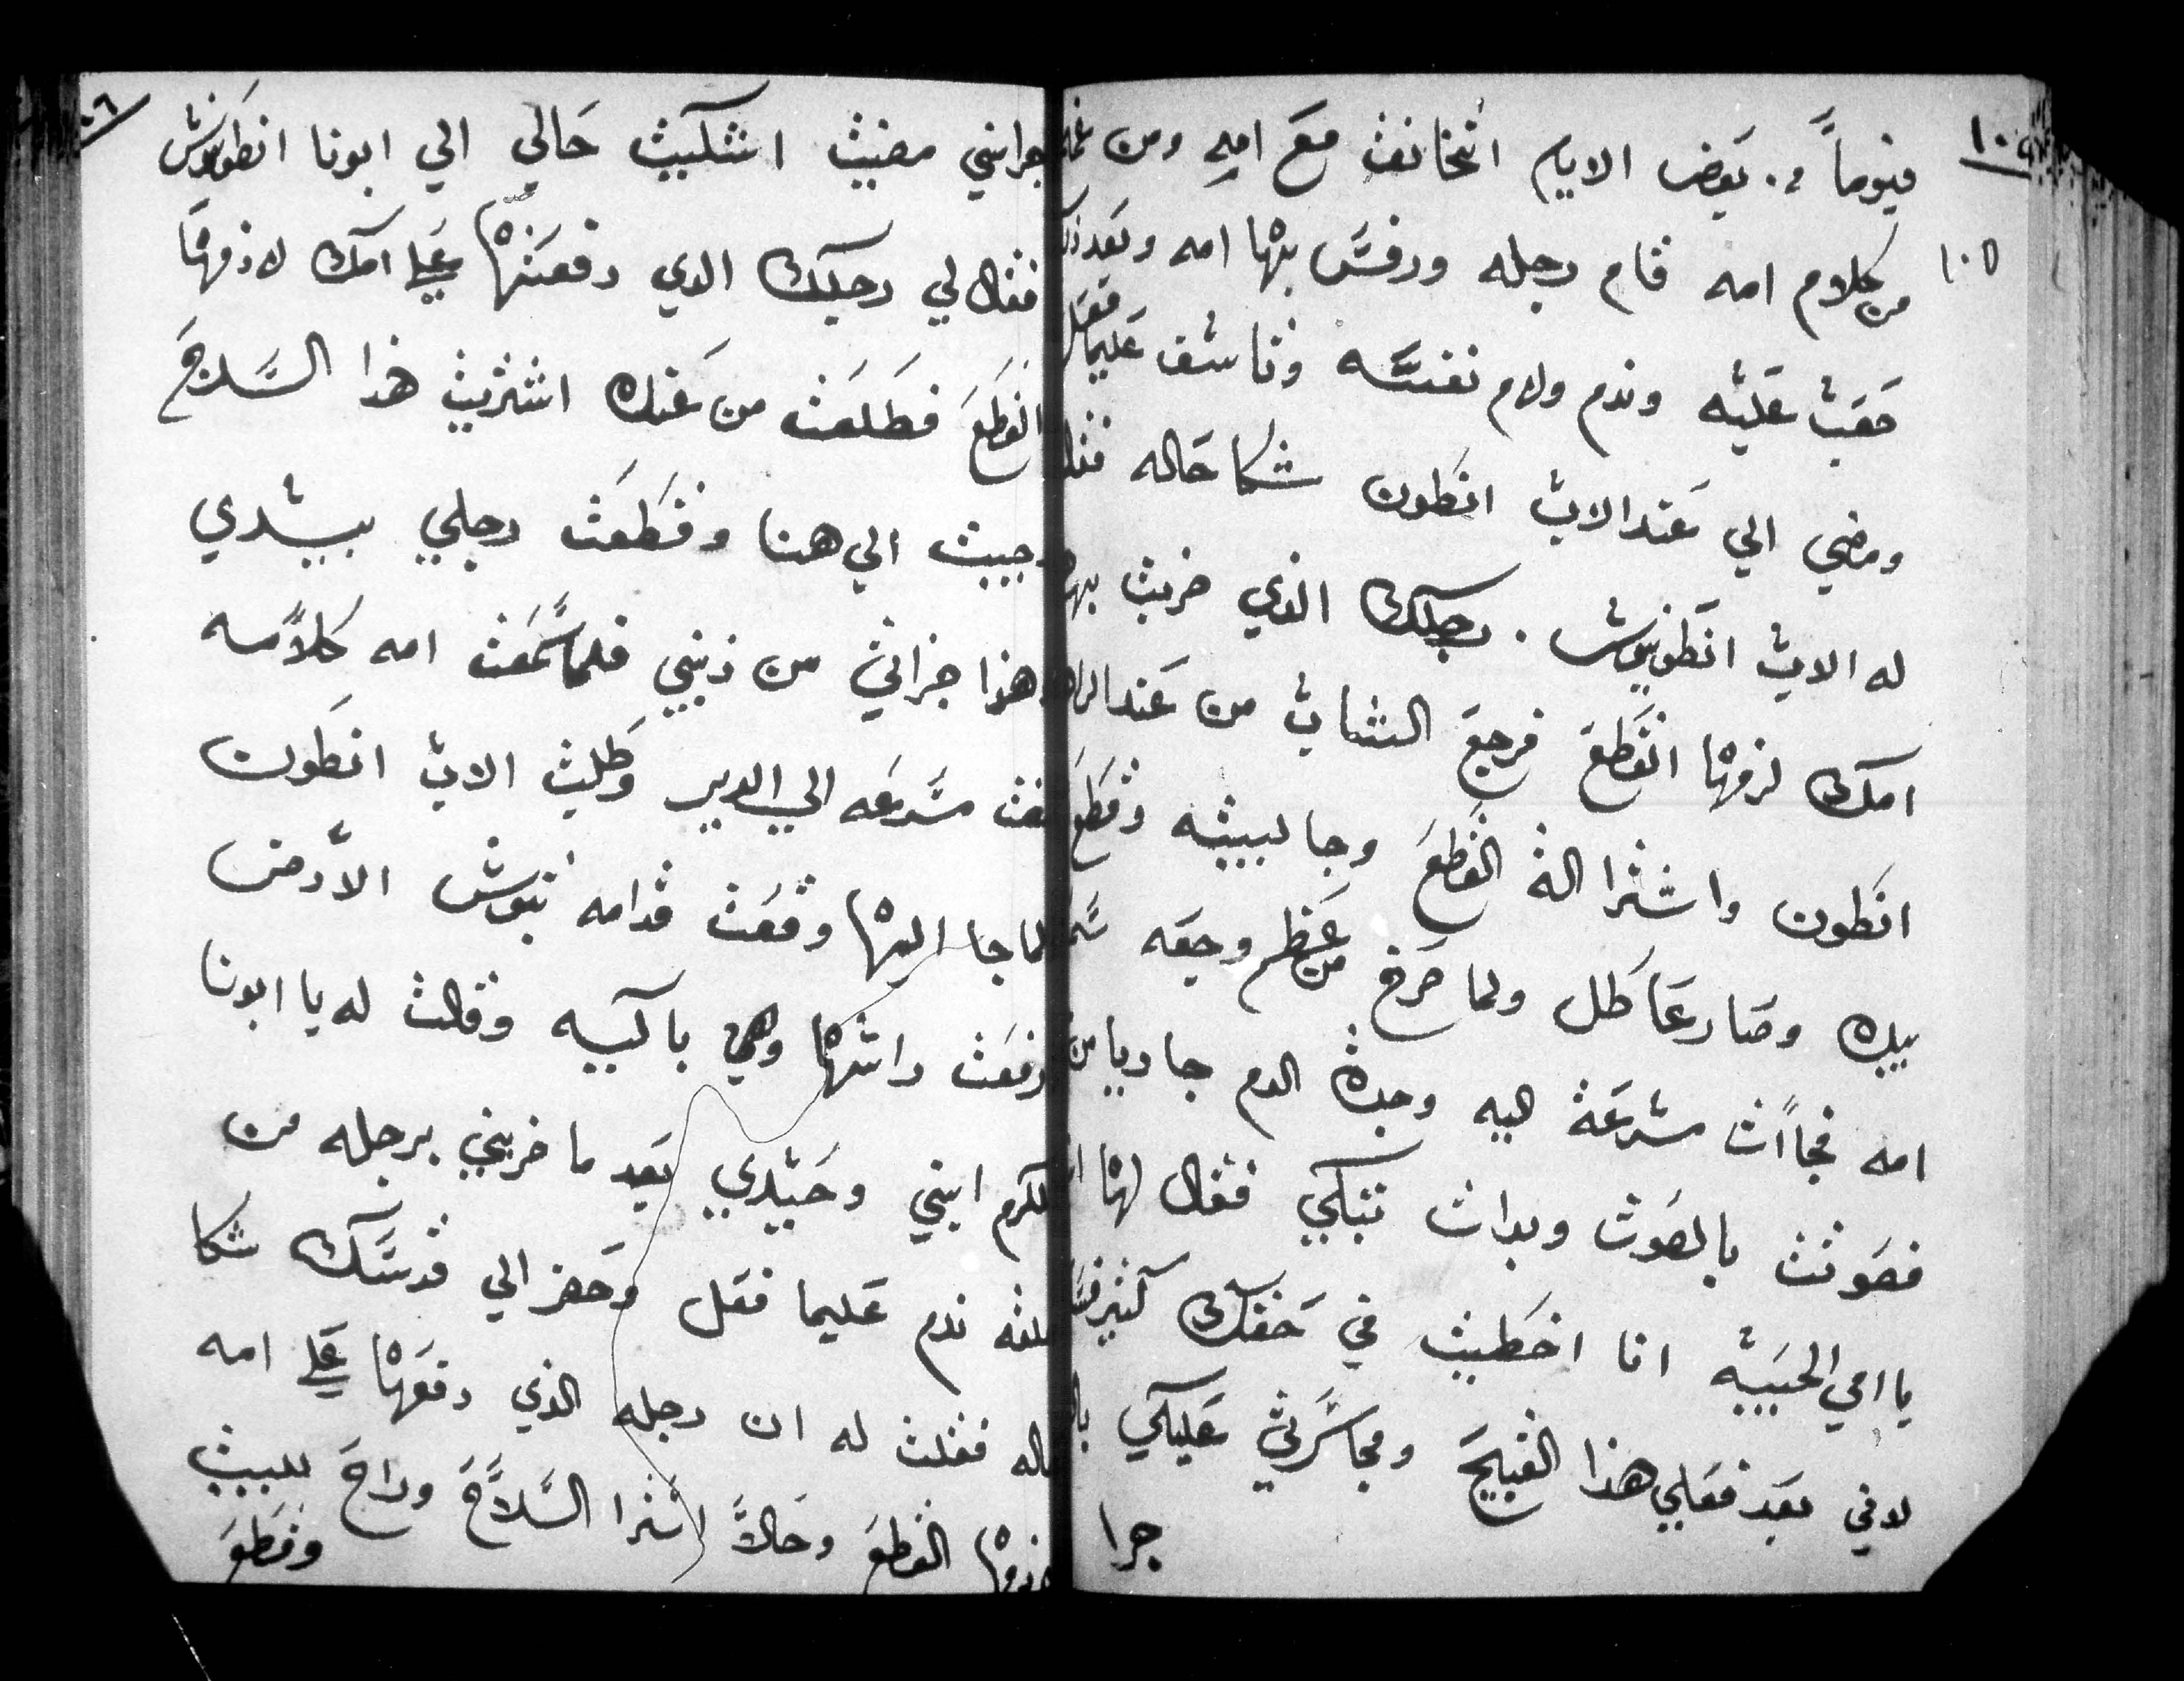 ١٠٥
فيوماً من بعض الايام اتخانق مع امه ومن
١٠٥
من كلام امه قام رجله ورفس بها امه وبعد ذلك
حقب عليه وندم ولام نفسه وتاسف عليما فعل
ومضي الي عند الاب انطون شكا حاله فقال
له الاب انطونيوس . رجلك الذي ضربت بها
امك لزمها القطع فرجع الشاب من عند الراهب
انطون واشترا الة القطع وجا لبيته وقطع
بيده وصار عاطل ولما صرخ من عظم وجعه
امه فجاات مسرعة اليه وجدة الدم جاريا من
فصوتت بالصوت وبدات تبكي فقال لها
يا امي الحبيبه انا اخطيت في حقك كثير
لاني بعد فعلي هذا القبيح ومجاسرتي عليكي
جرا
جرا انني مضيت اشتكيت حالي الي ابونا انطونيوس
فقال لي رجلك الدي رفعتها علي امك لازمها
القطع فطلعت من عنده اشتريت هذا السلاح
وجيت الي هنا وقطعت رجلي بيدي
هذا جزاتي من ذنبي فلما سمعت امه كلامه
مسرعه الي الدير وطلبت الاب انطون
لما جا اليها وقعت قدامه تبوس الارض
رفعت راسها وهي باكيه وقالت له يا ابونا
المكرم ابني وحيدي بعد ما ضربني برجله من
ندم عليما فعل وحضر الي قدسك شكا
حاله فقلت له ان رجله الذي رفعها علي امه
لازمها القطع وحالاً اشترا السلاح وراح للبيت
وقطع